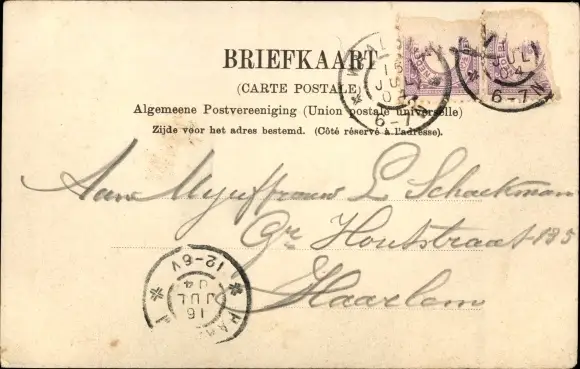 BRIEFKAART
(CARTE POSTALE)
Algemeene Postvereeniging (Union postale universelle)
Zijde voor het adres bestemd. (Côté réservé à l'adresse).
Aan Mejuffrouw L Schaekman
Gr Houtstraat 125
Haarlem
JUL
04
6-7
JUL
04
6-7N
12-6V
16
JUL
04